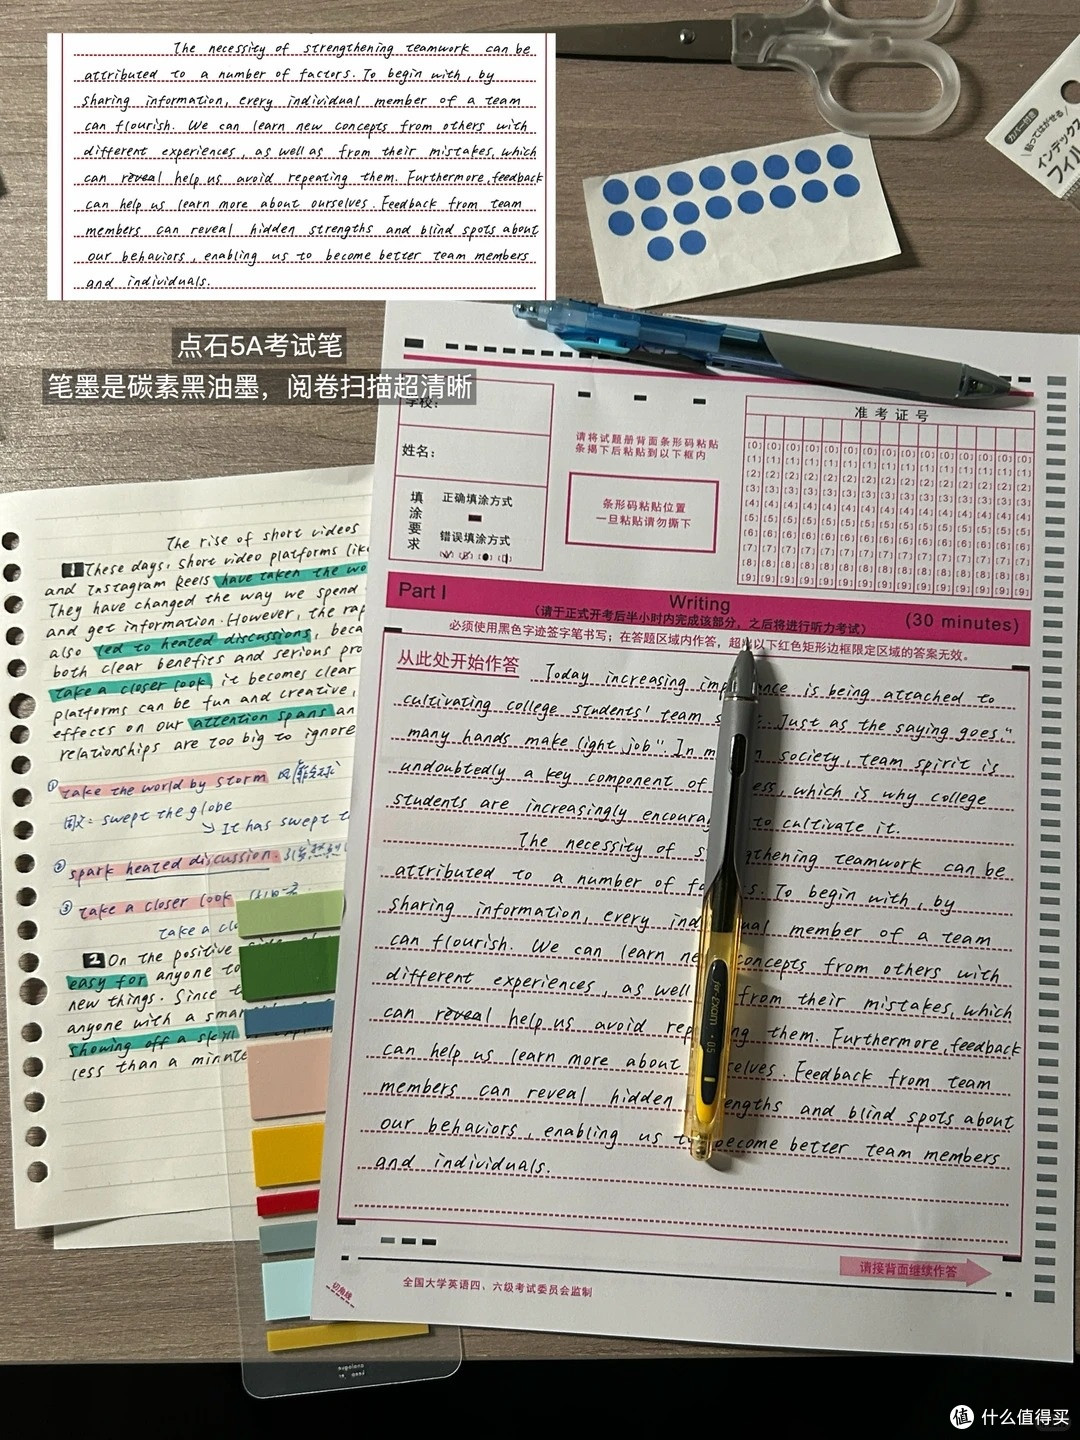 The necessity of strengthening teamwork can be
attributed to a number of factors. To begin with, by
sharing information, every individual member of a team
can flourish. We can learn new concepts from others with
different experiences, as well as from their mistakes, which
can reveal help us avoid repeating them. Furthermore, feedback
can help us learn more about ourselves. Feedback from team
members can reveal hidden strengths and blind spots about
our behaviors, enabling us to become better team members
and individuals.
点石5A考试笔
笔墨是碳素黑油墨，阅卷扫描超清晰
カバー付き
貼ってはがせる
インデックス
フィル
学校：
姓名：
填涂要求
正确填涂方式
错误填涂方式
请将试题册背面条形码粘贴
条揭下后粘贴到以下框内
条形码粘贴位置
一旦粘贴请勿撕下
准考证号
[0] [0] [0] [0] [0] [0] [0] [0] [0] [0] [0] [0] [0] [0] [0]
[1] [1] [1] [1] [1] [1] [1] [1] [1] [1] [1] [1] [1] [1] [1]
[2] [2] [2] [2] [2] [2] [2] [2] [2] [2] [2] [2] [2] [2] [2]
[3] [3] [3] [3] [3] [3] [3] [3] [3] [3] [3] [3] [3] [3] [3]
[4] [4] [4] [4] [4] [4] [4] [4] [4] [4] [4] [4] [4] [4] [4]
[5] [5] [5] [5] [5] [5] [5] [5] [5] [5] [5] [5] [5] [5] [5]
[6] [6] [6] [6] [6] [6] [6] [6] [6] [6] [6] [6] [6] [6] [6]
[7] [7] [7] [7] [7] [7] [7] [7] [7] [7] [7] [7] [7] [7] [7]
[8] [8] [8] [8] [8] [8] [8] [8] [8] [8] [8] [8] [8] [8] [8]
[9] [9] [9] [9] [9] [9] [9] [9] [9] [9] [9] [9] [9] [9] [9]
Part I Writing (30 minutes)
(请于正式开考后半小时内完成该部分，之后将进行听力考试)
必须使用黑色字迹签字笔书写；在答题区域内作答，超出以下红色矩形边框限定区域的答案无效。
从此处开始作答
Today increasing imp nce is being attached to
cultivating college students' team s Just as the saying goes,"
many hands make light job". In m n society, team spirit is
undoubtedly a key component of ess, which is why college
students are increasingly encourag to cultivate it.
The necessity of s gthening teamwork can be
attributed to a number of fa s. To begin with, by
sharing information, every ind ual member of a team
can flourish. We can learn ne concepts from others with
different experiences, as well from their mistakes, which
can reveal help us avoid rep ing them. Furthermore, feedback
can help us learn more about selves. Feedback from team
members can reveal hidden engths and blind spots about
our behaviors, enabling us to become better team members
and individuals.
请接背面继续作答
全国大学英语四、六级考试委员会监制
切角线
The rise of short videos
1 These days, short video platforms lik
and Instagram Reels have taken the wo
They have changed the way we spend
and get information. However, the rap
also led to heated discussions, beca
both clear benefits and serious pro
take a closer look, it becomes clear
platforms can be fun and creative,
effects on our attention spans an
relationships are too big to ignore
① take the world by storm 风靡全球
swept the globe
It has swept t
② spark heated discussion. 引发热烈
③ take a closer look
take a clo
2 On the positive side of
easy for anyone to
new things. Since t
anyone with a smar
showing off a skill
less than a minute
值 什么值得买